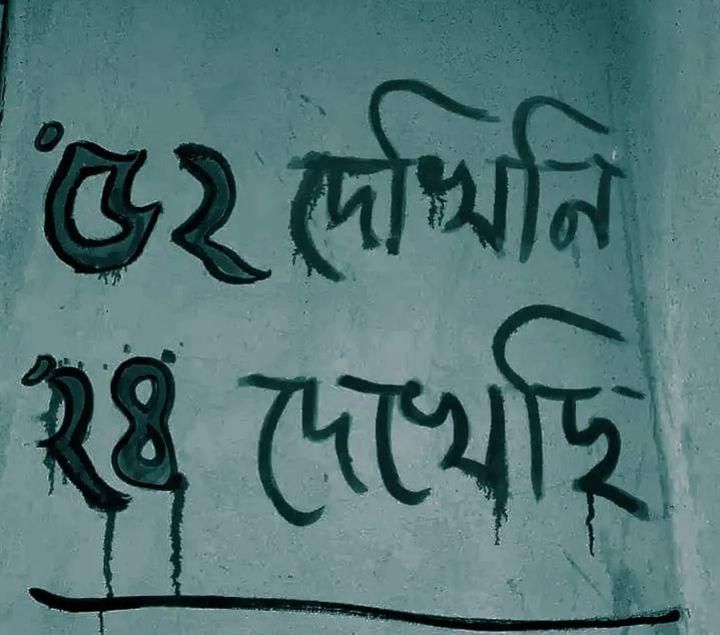 '৫২ দেখিনি
'২৪ দেখেছি